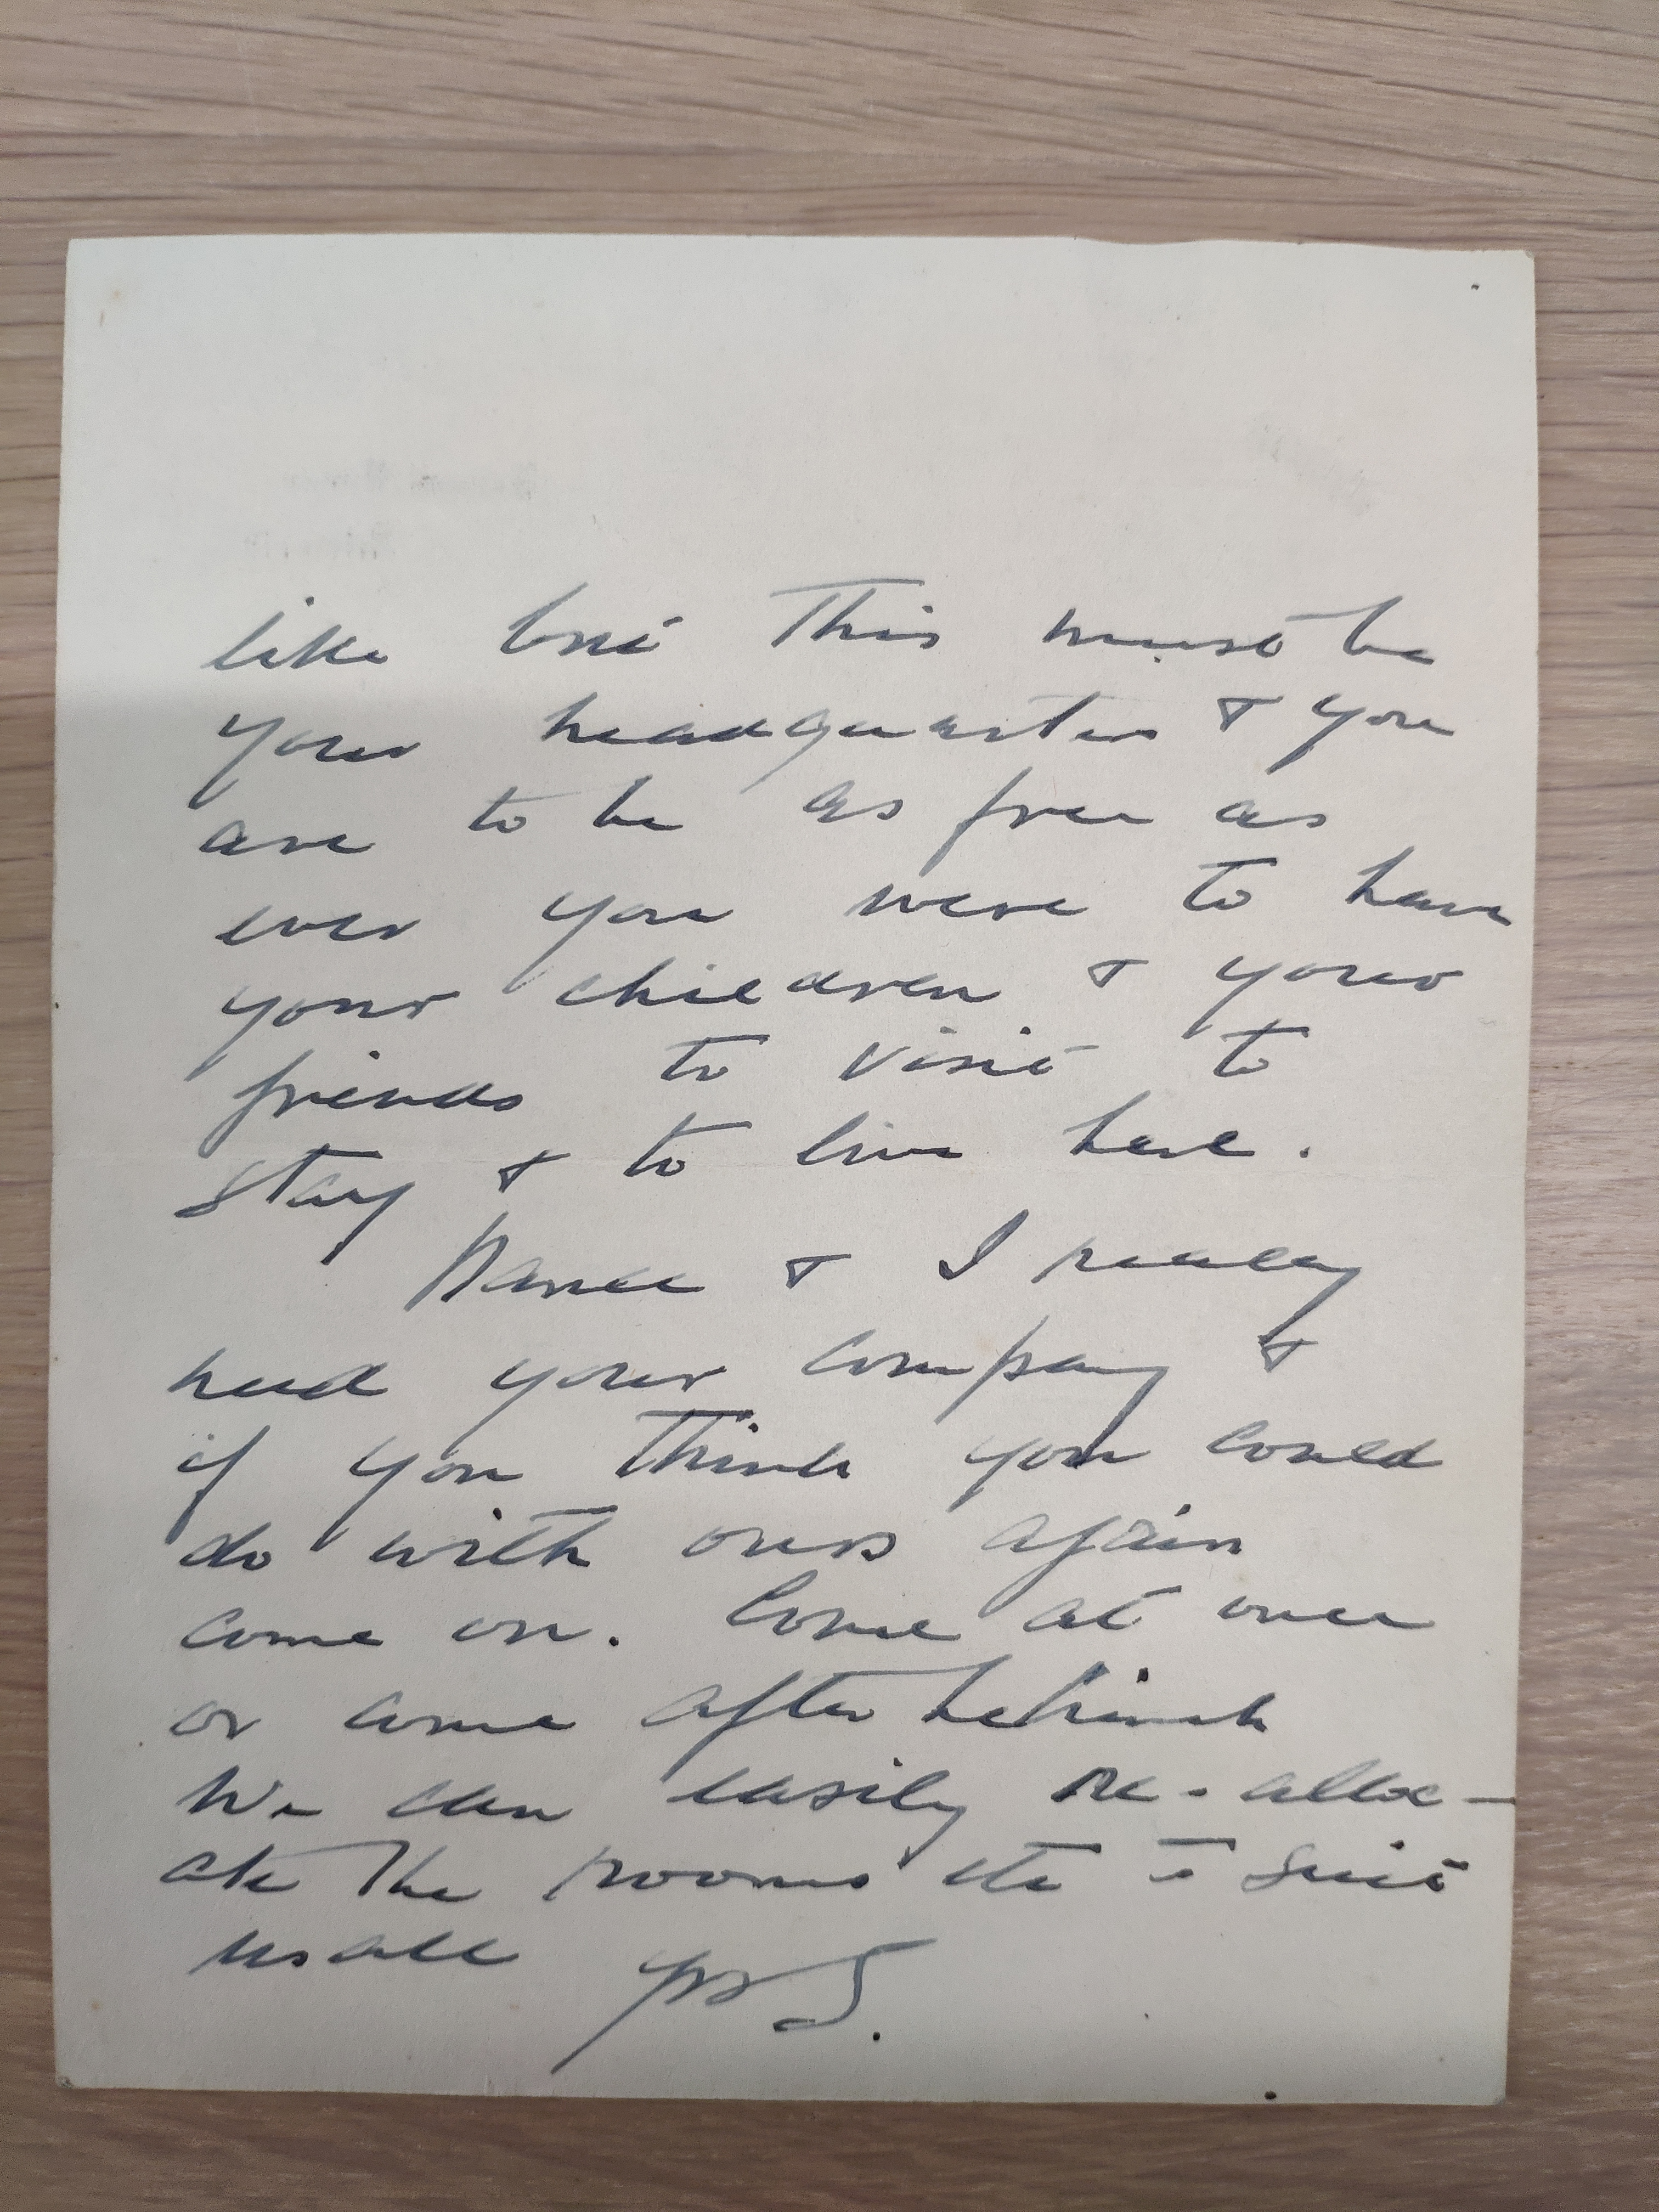 like but This must be
your headquarters & you
are to be as free as
ever you were to have
your children & your
friends to visit to
stay & to live here.
Nance & I really
need your company &
if you think you could
do with ours again
come on. Come at once
or come after Helsinki
We can easily re-alloc-
ate the rooms etc to suit
us all yrs S.